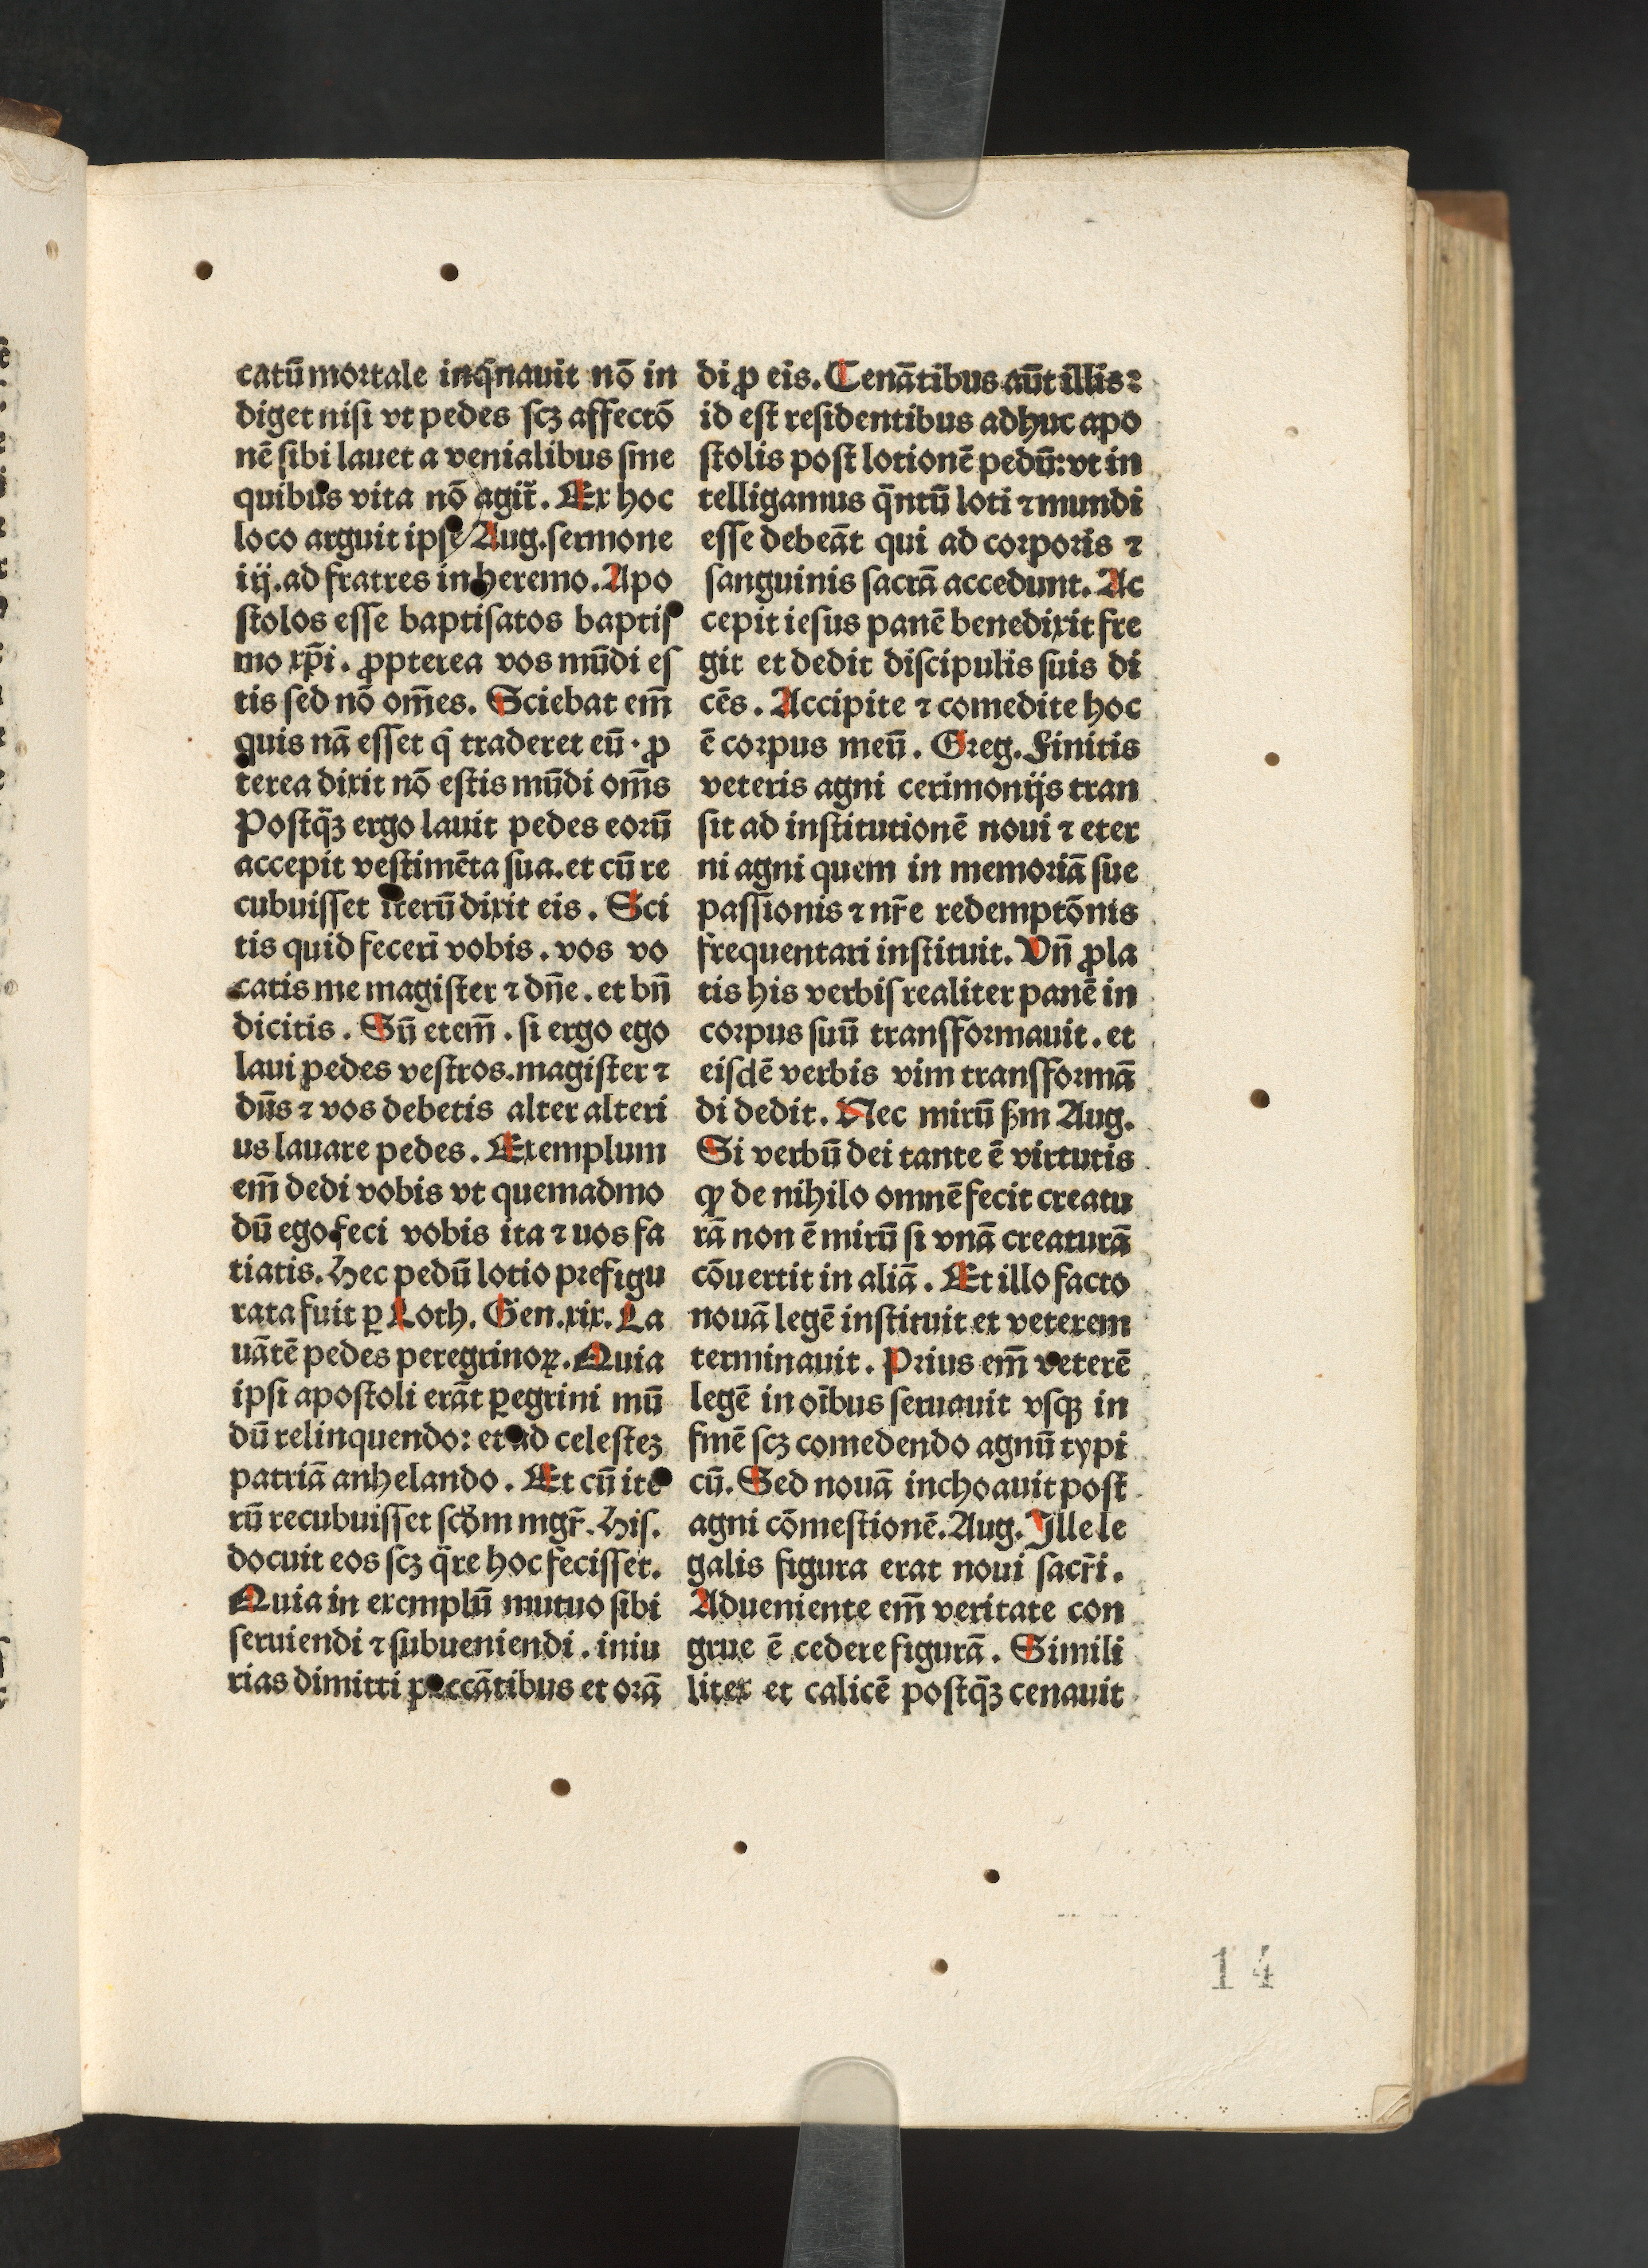 catū mortale inq̄nauit nō in
diget nisi vt pedes scꝫ affectō
nē sibi lauet a venialibus sine
quibus vita nō agit᷑. Ex hoc
loco arguit ipse Aug. sermone
iij. ad fratres in heremo. Apo
stolos esse baptisatos baptis
mo xp̄i. ꝓpterea vos mūdi es
tis sed nō om̄es. Sciebat em̄
quis nā esset q̇ traderet eū. ꝓ
terea dixit nō estis mūdi om̄s
Postq̄ꝫ ergo lauit pedes eorū
accepit vestimēta sua. et cū re
cubuisset iterū dixit eis. Sci
tis quid fecerī vobis. vos vo
catis me magister ⁊ dn̄e. et bn̄
dicitis. Sū etem̄. si ergo ego
laui pedes vestros. magister ⁊
dn̄s ⁊ vos debetis alter alteri
us lauare pedes. Exemplum
em̄ dedi vobis vt quemadmo
dū ego feci vobis ita ⁊ uos fa
tiatis. Hec pedū lotio prefigu
rata fuit ꝑ Loth. Gen. xix. La
uātē pedes peregrinoꝝ. Quia
ipsi apostoli erāt ꝑegrini mū
dū relinquendo: et ad celesteꝫ
patriā anhelando. Et cū ite
rū recubuisset scd̄m mgr̄. His.
docuit eos scꝫ q̄re hoc fecisset.
Quia in exemplū mutuo sibi
seruiendi ⁊ subueniendi. iniu
rias dimitti peccātibus et orā
di ꝓ eis. Cenātibus aūt illis:
id est residentibus adhuc apo
stolis post lotionē pedū: vt in
telligamus q̄ntū loti ⁊ mundi
esse debeāt qui ad corporis ⁊
sanguinis sacrā accedunt. Ac
cepit iesus panē benedixit fre
git et dedit discipulis suis di
cēs. Accipite ⁊ comedite hoc
ē corpus meū. Greg. Finitis
veteris agni cerimonijs tran
sit ad institutionē noui ⁊ eter
ni agni quem in memoriā sue
passionis ⁊ nr̄e redemptōnis
frequentari instituit. Vn̄ ꝓla
tis his verbis realiter panē in
corpus suū transformauit. et
eisdē verbis vim transformā
di dedit. Nec mirū ẜm Aug.
Si verbū dei tante ē virtutis
ꝙ de nihilo omnē fecit creatu
rā non ē mirū si vnā creaturā
cōuertit in aliā. Et illo facto
nouā legē instituit et veterem
terminauit. Prius em̄ veterē
legē in oībus seruauit vsqꝫ in
finē scꝫ comedendo agnū typi
cū. Sed nouā inchoauit post
agni cōmestionē. Aug. Ille le
galis figura erat noui sacr̄i.
Adueniente em̄ veritate con
grue ē cedere figurā. Simili
liter et calicē postq̄ꝫ cenauit
14